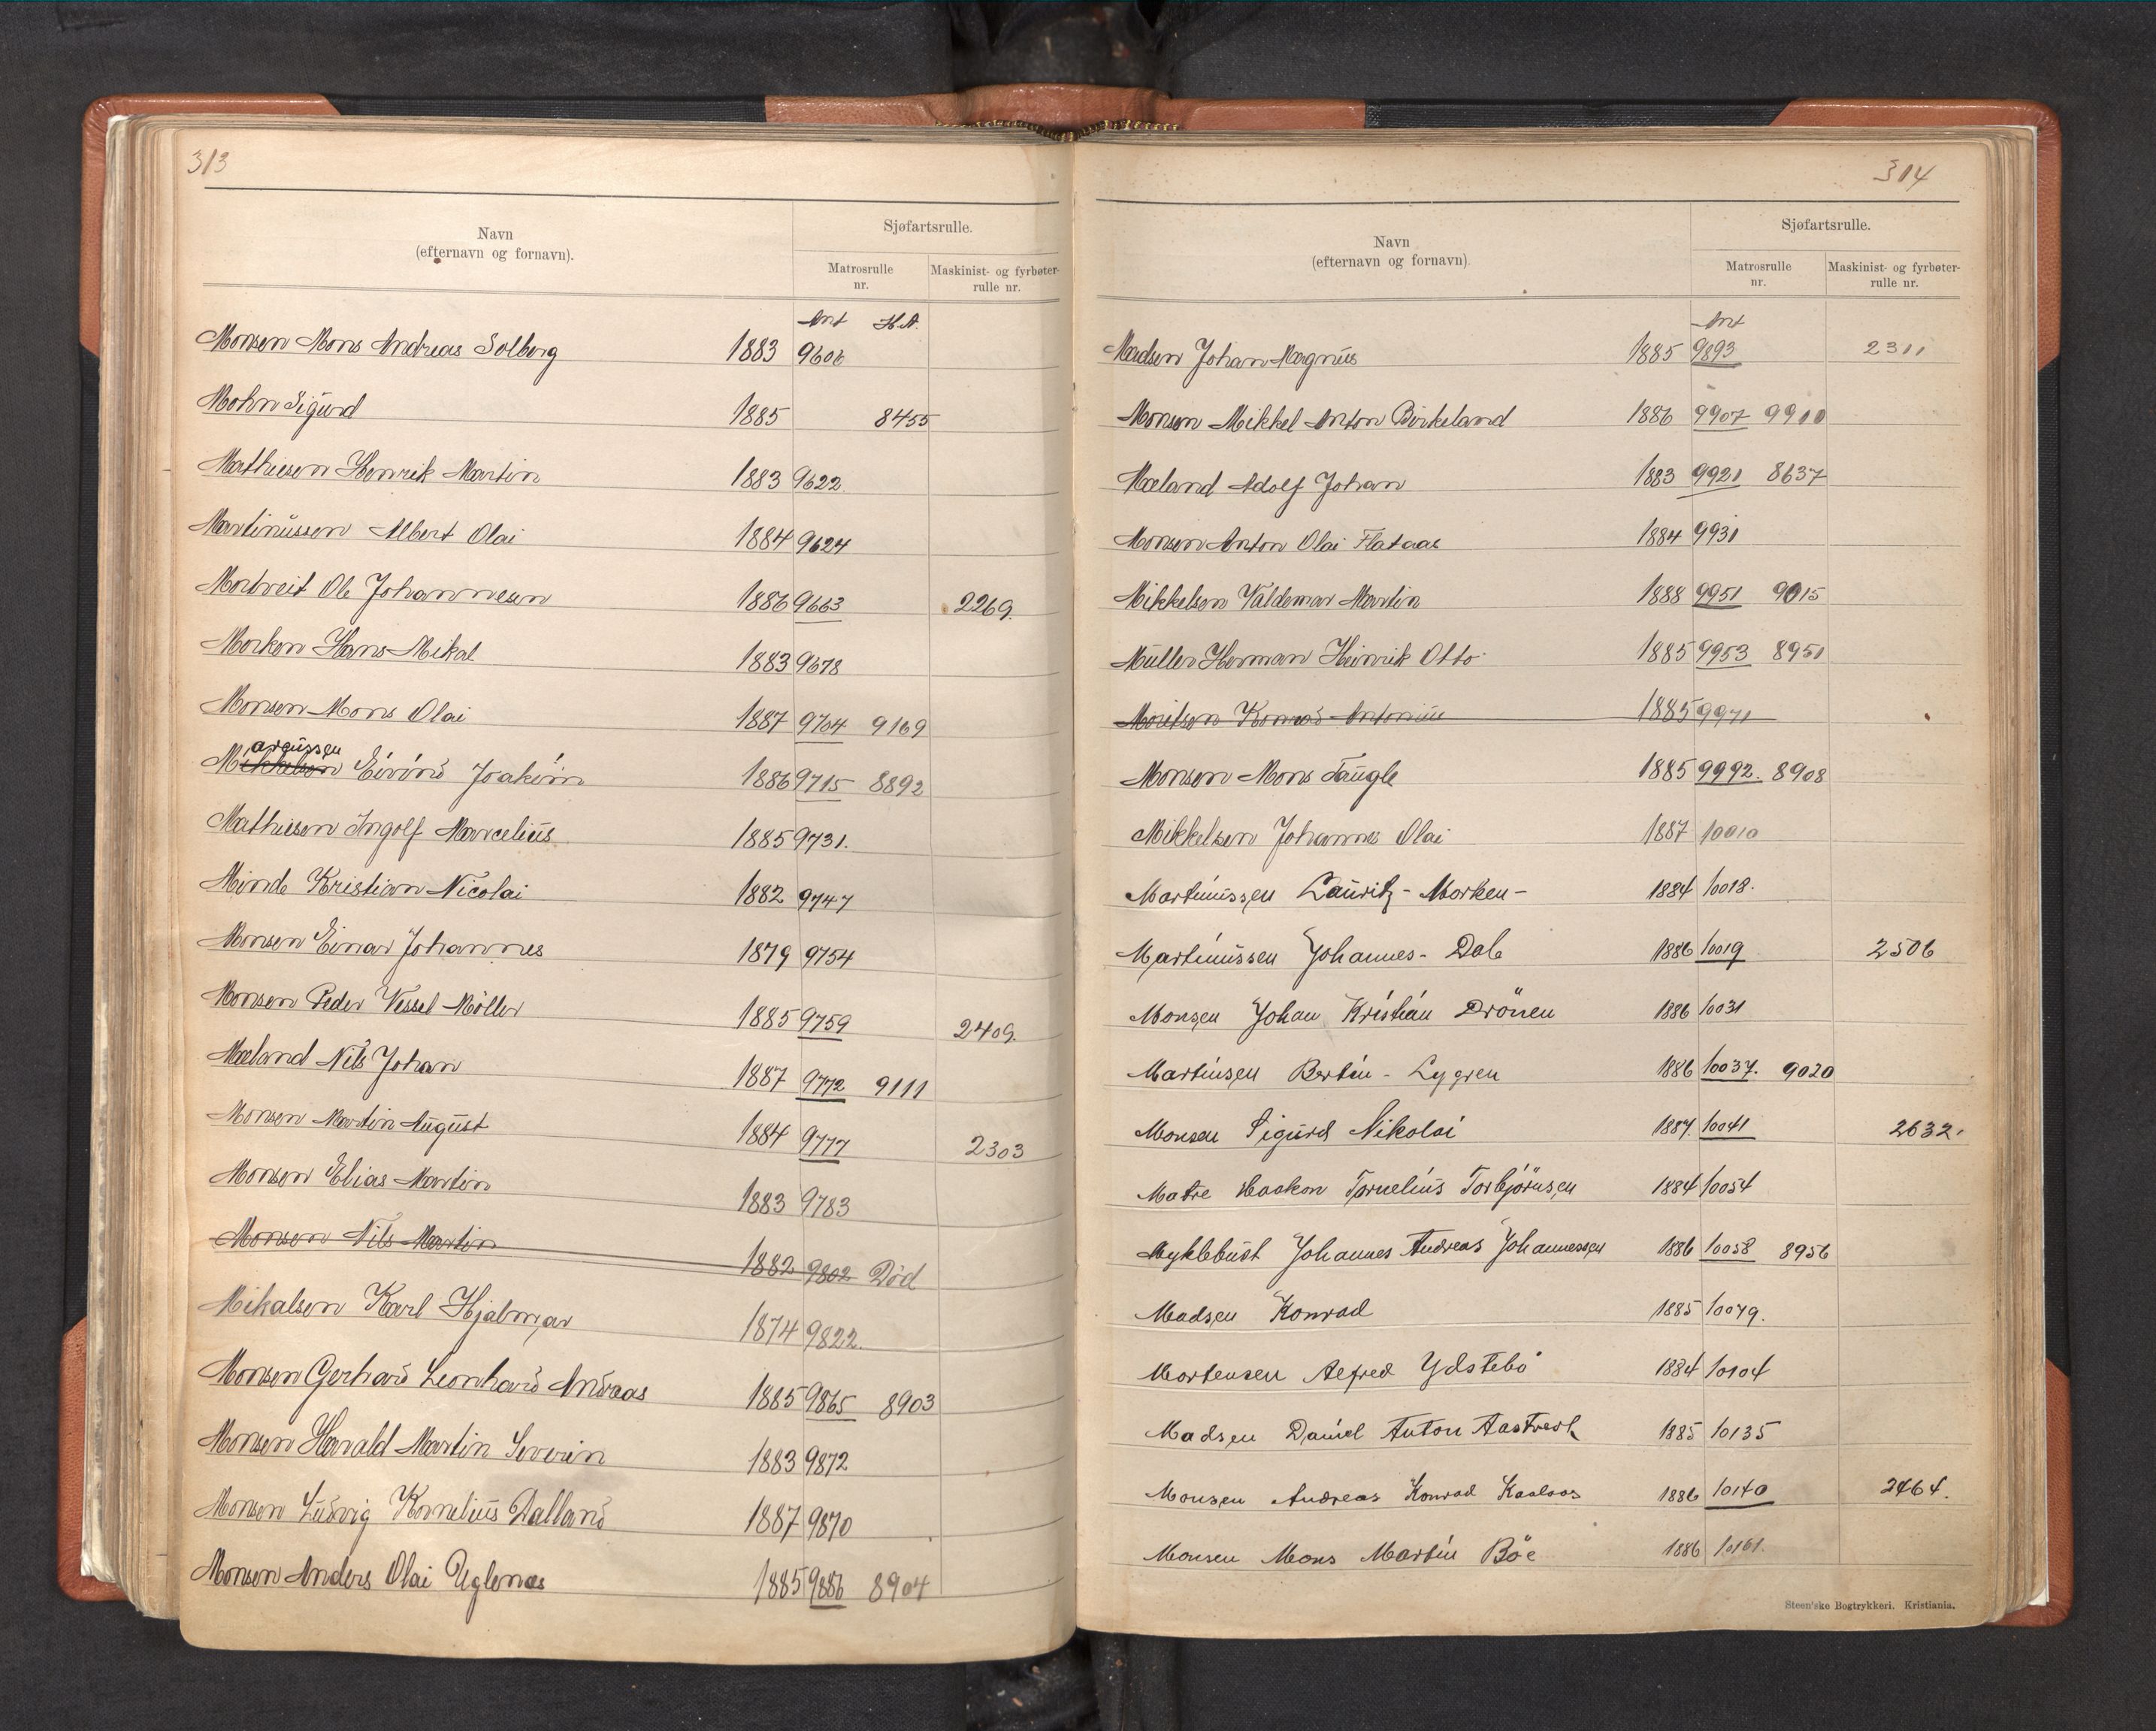 313
Navn
(efternavn og fornavn).
Sjøfartsrulle.
Matrosrulle
nr.
Maskinist- og fyrbøter-
rulle nr.
Ant H.A.
Monsen Mons Andreas Solberg 1883 9606
Mohn Sigurd 1885 8455
Mathiesen Henrik Martin 1883 9622
Martinussen Albert Olai 1884 9624
Mortveit Ole Johannesen 1886 9663 2269.
Morken Hans Mikal 1883 9678
Monsen Mons Olai 1887 9704 9169
arcussen
Mikkelsen Eivind Joakim 1886 9715 8892
Mathiesen Ingolf Marcelius 1885 9731.
Minde Kristian Nicolai 1882 9747
Monsen Einar Johannes 1879 9754
Monsen Peder Vessel Möller 1885 9759 2409.
Mæland Nils Johan 1887 9772 9111
Monsen Martin August 1884 9777 2303
Monsen Elias Martin 1883 9783
Monsen Nils Martin 1882 9802 Död
Mikalsen Karl Hjalmar 1874 9822.
Monsen Gerhard Leonhard Andreas 1885 9865 8903
Monsen Harald Martin Severin 1883 9872
Monsen Ludvig Kornelius Dalland 1887 9870
Monsen Anders Olai Uglenæs 1885 9886 8904
314
Navn
(efternavn og fornavn).
Sjøfartsrulle.
Matrosrulle
nr.
Maskinist- og fyrbøter-
rulle nr.
Ant
Madsen Johan Magnus 1885 9893 2311
Monsen Mikkel Anton Birkeland 1886 9907 9910
Mæland Adolf Johan 1883 9921 8637
Monsen Anton Olai Flataas 1884 9931
Mikkelsen Valdemar Martin 1888 9951 9015
Müller Herman Heinrik Otto 1885 9953 8951
Moritsen Konrad Antonius 1885 9971
Monsen Mons Taugle 1885 9992. 8908
Mikkelsen Johannes Olai 1887 10010
Martinussen Lauritz - Morken - 1884 10018.
Martinussen Johannes - Dale 1886 10019 2506
Monsen Johan Kristian Drönen 1886 10031
Martinsen Bertin - Lygren 1886 10037. 9020
Monsen Sigurd Nikolai 1887. 10041 2632.
Matre Haakon Tornelius Torbjörnsen 1884 10054
Myklebust Johannes Andreas Johannessen 1886 10058 8956
Madsen Konrad 1885 10079.
Mortensen Alfred Ydstebö 1884 10104
Madsen Daniel Anton Aastvedt 1885 10135
Monsen Andreas Konrad Kaalaas 1886 10140 2464.
Monsen Mons Martin Böe 1886 10161.
Steen'ske Bogtrykkeri. Kristiania.